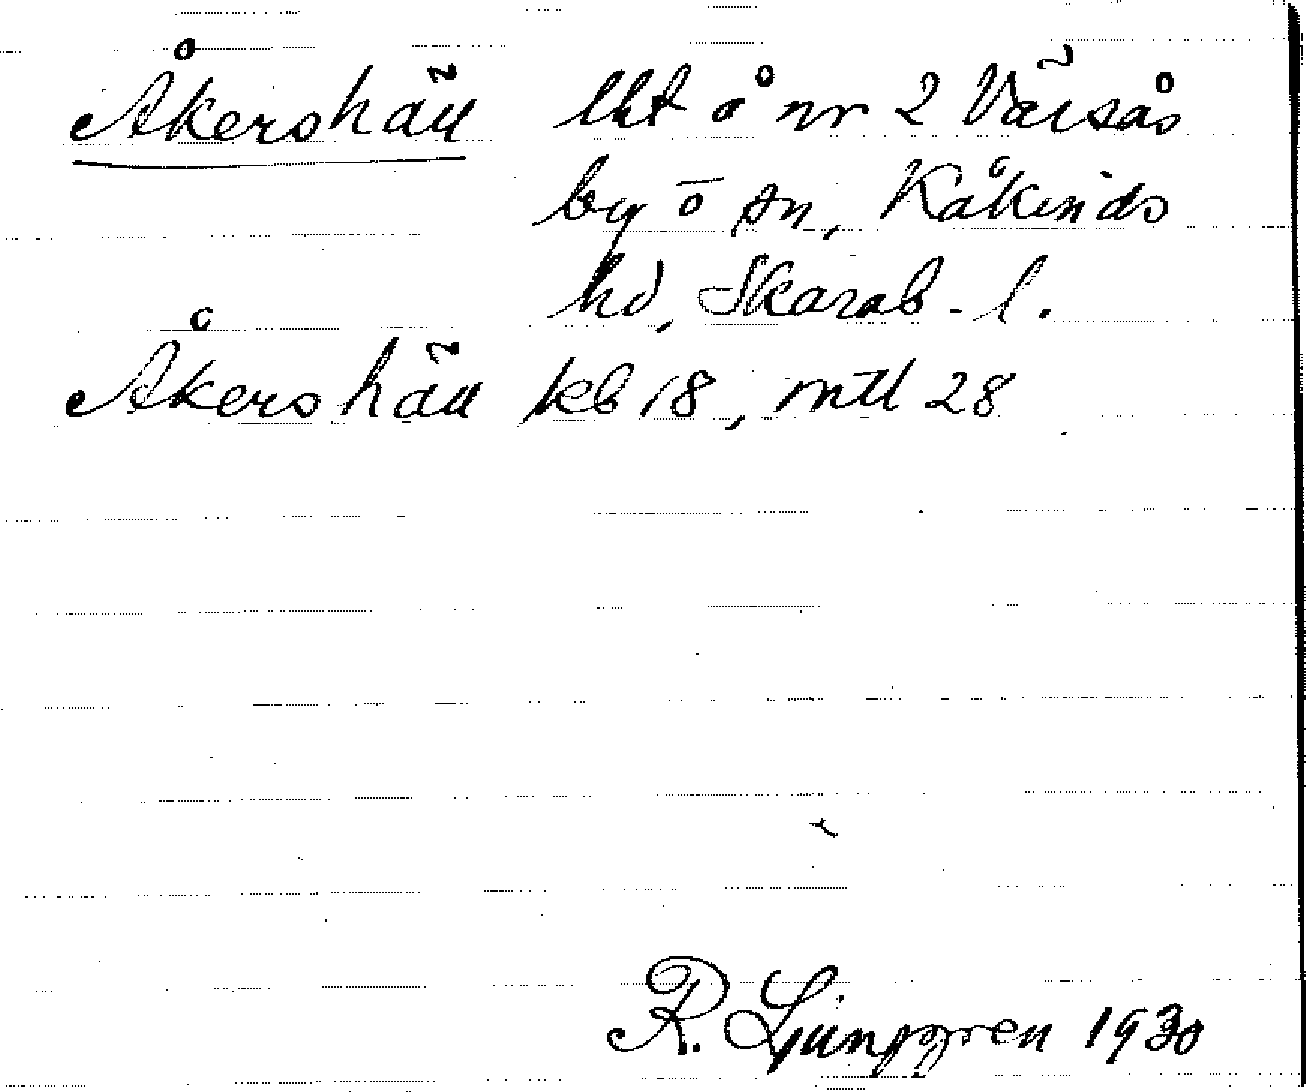 Åkershäll lht å nr 2 Värsås
by o sn, Kåkinds
hd, Skarab. l.
Åkershäll kb 18, mtl 28
R. Ljunggren 1930